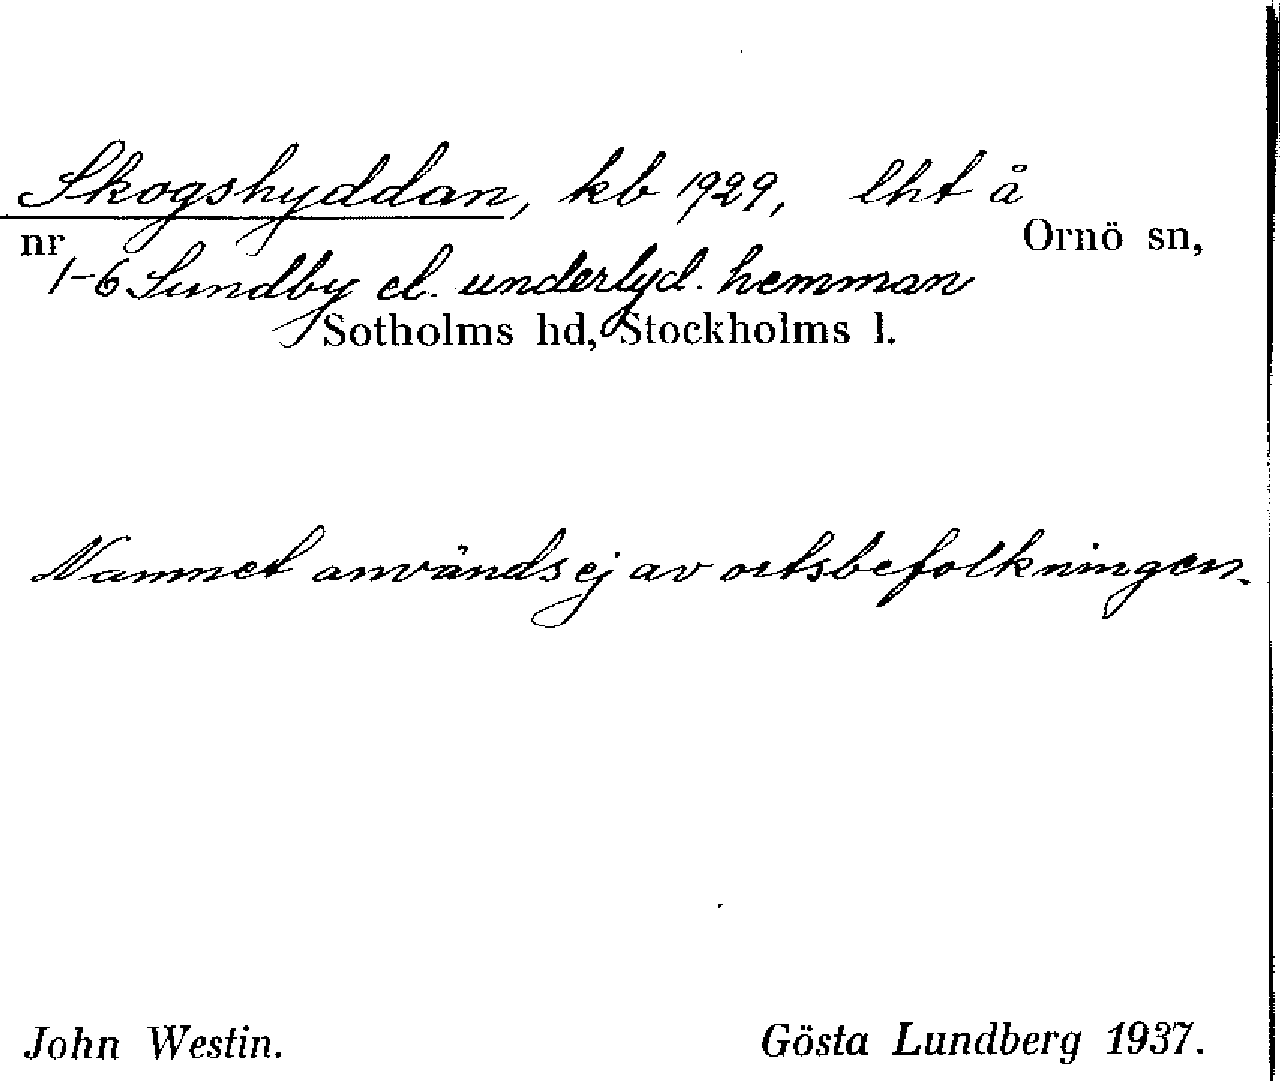 Skogshyddan, kb 1929, lht å
nr Ornö sn,
1-6 Sundby el. underlyd. hemman
Sotholms hd, Stockholms l.
Namnet användsej av ortsbefolkningen.
John Westin. Gösta Lundberg 1937.